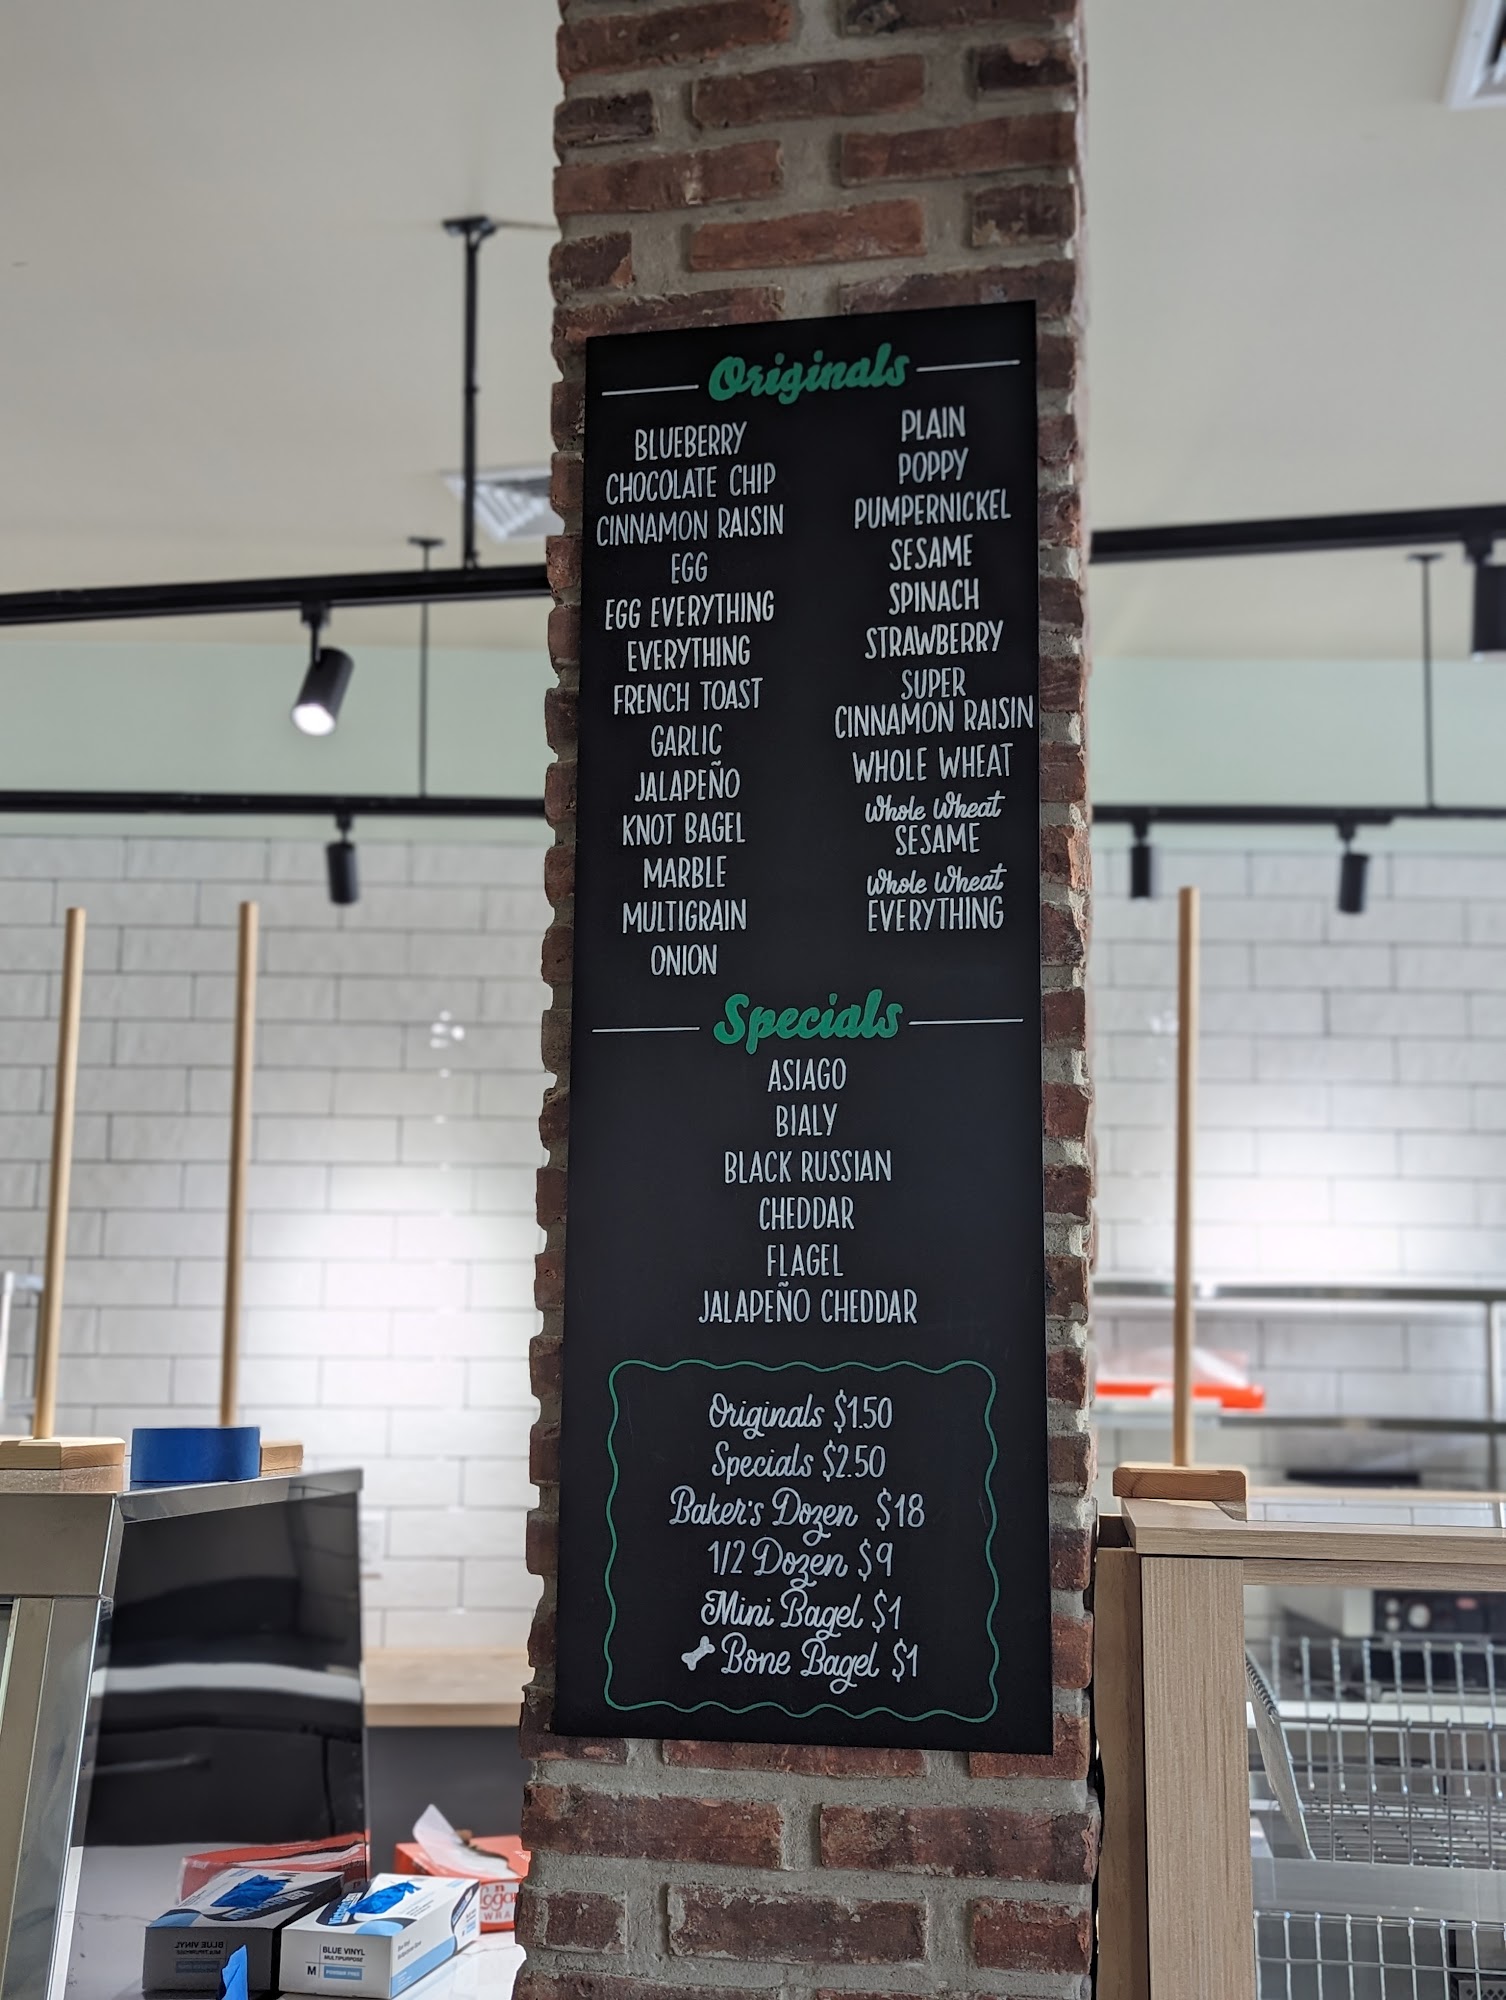 Originals
BLUEBERRY
CHOCOLATE CHIP
CINNAMON RAISIN
EGG
EGG EVERYTHING
EVERYTHING
FRENCH TOAST
GARLIC
JALAPEÑO
KNOT BAGEL
MARBLE
MULTIGRAIN
ONION
PLAIN
POPPY
PUMPERNICKEL
SESAME
SPINACH
STRAWBERRY
SUPER
CINNAMON RAISIN
WHOLE WHEAT
Whole Wheat
SESAME
Whole Wheat
EVERYTHING
Specials
ASIAGO
BIALY
BLACK RUSSIAN
CHEDDAR
FLAGEL
JALAPEÑO CHEDDAR
Originals $1.50
Specials $2.50
Baker's Dozen $18
1/2 Dozen $9
Mini Bagel $1
Bone Bagel $1
BLUE VINYL
MULTIPURPOSE
M
POWDER FREE